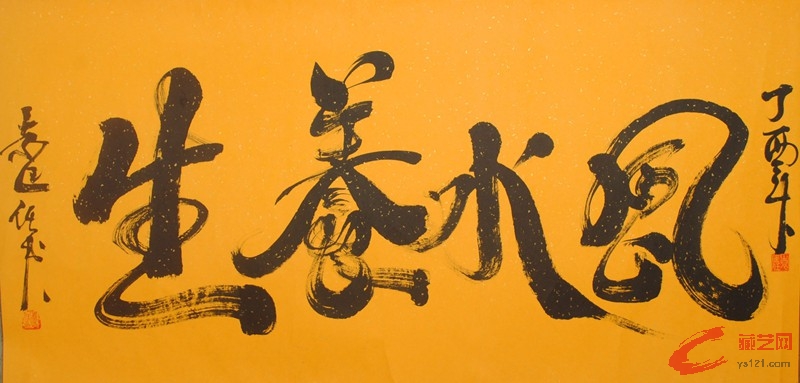 丁酉年
風水養生
藏艺网
ys121.com